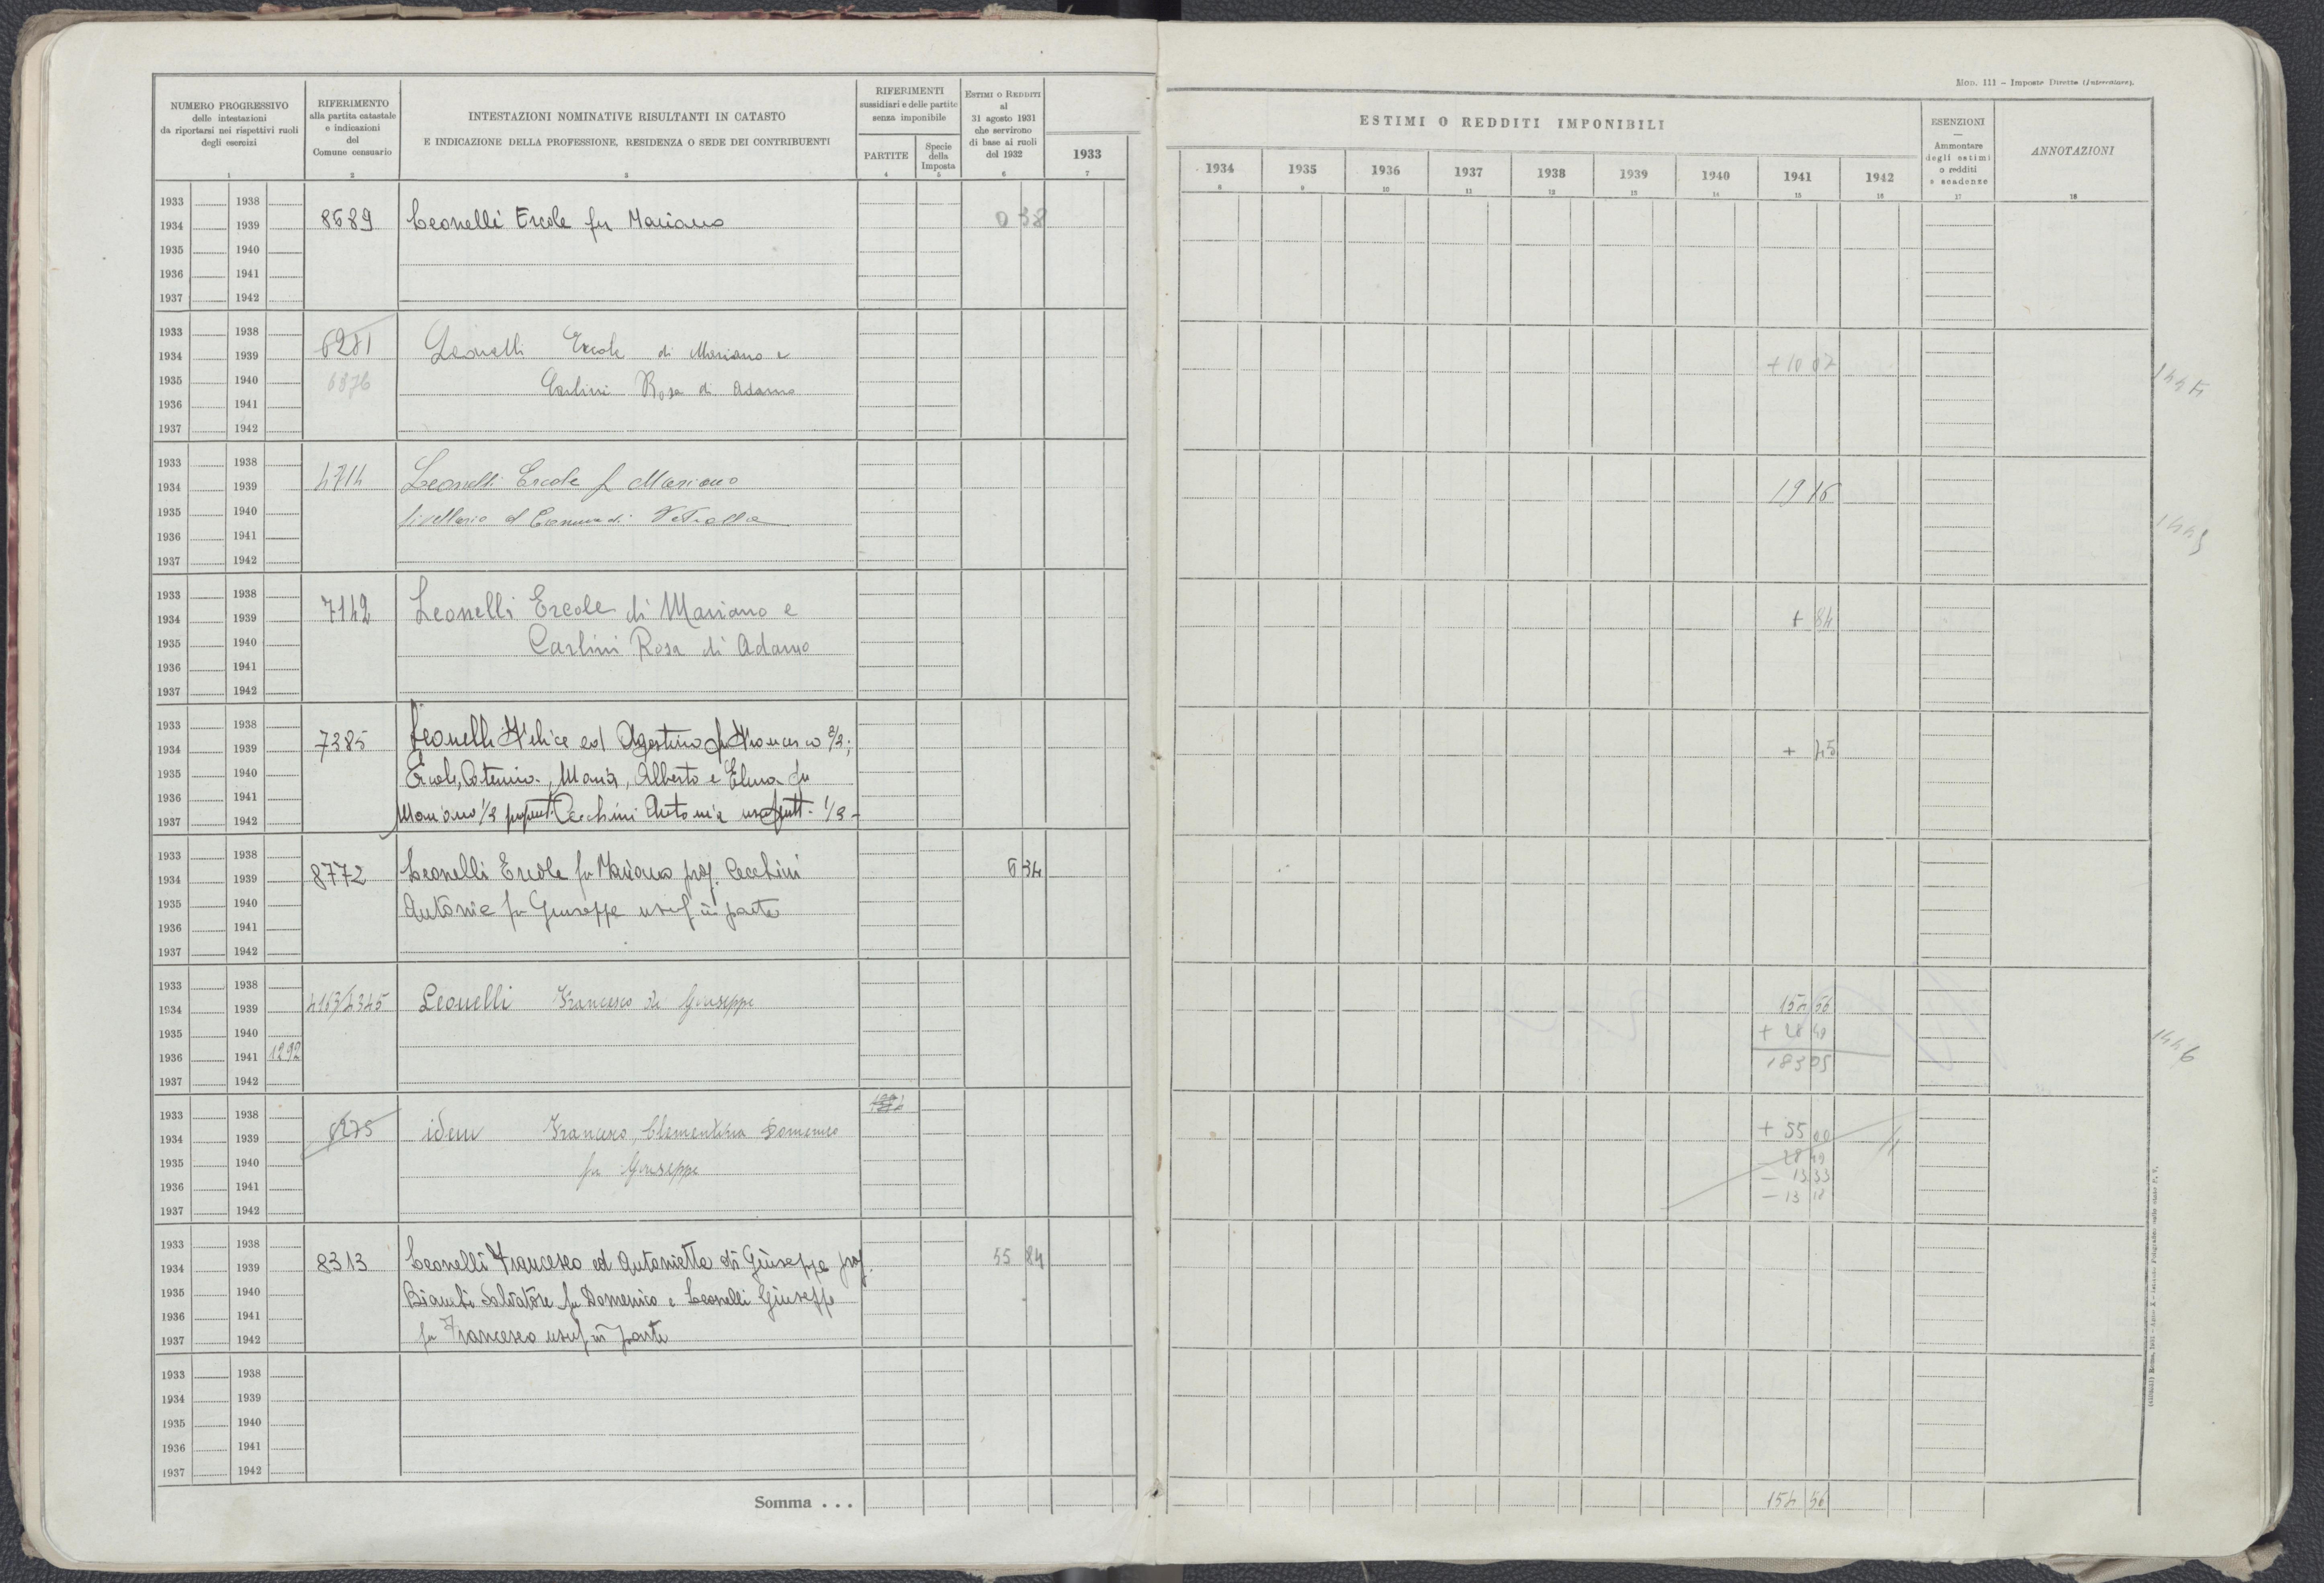 Mod. 111 - Imposte Dirette (Intercalare).
NUMERO PROGRESSIVO
delle intestazioni
da riportarsi nei rispettivi ruoli
degli esercizi
1
RIFERIMENTO
alla partita catastale
e indicazioni
del
Comune censuario
2
INTESTAZIONI NOMINATIVE RISULTANTI IN CATASTO
E INDICAZIONE DELLA PROFESSIONE, RESIDENZA O SEDE DEI CONTRIBUENTI
3
RIFERIMENTI
sussidiari e delle partite
senza imponibile
PARTITE
4
Specie
della
Imposta
5
ESTIMI O REDDITI
al
31 agosto 1931
che servirono
di base ai ruoli
del 1932
6
1933
7
ESTIMI O REDDITI IMPONIBILI
1934 1935 1936 1937 1938 1939 1940 1941 1942
8 9 10 11 12 13 14 15 16
ESENZIONI
—
Ammontare
degli estimi
o redditi
e scadenze
17
ANNOTAZIONI
18
1933 1938
1934 1939 8689 Leonelli Ercole fu Mariano 0 38
1935 1940
1936 1941
1937 1942
1933 1938
1934 1939 6281 Leonelli Ercole di Mariano e + 10 07
1935 1940 6876 Carlini Rosa di Adamo
1936 1941
1937 1942
1933 1938
1934 1939 4714 Leonelli Ercole f Mariano 19 16
1935 1940 livellario al Comune di Vetralla
1936 1941
1937 1942
1933 1938
1934 1939 7142 Leonelli Ercole di Mariano e + 84
1935 1940 Carlini Rosa di Adamo
1936 1941
1937 1942
1933 1938
1934 1939 7385 Leonelli Felice ed Agostino fu Francesco 2/3; + 45
1935 1940 Ercole, Caterina, Maria, Alberto e Elena fu
1936 1941
1937 1942 Mariano 1/3 propriet. Cecchini Antonia usufrutt. 1/3 -
1933 1938
1934 1939 8772 Leonelli Ercole fu Mariano prop. Cecchini 6 34
1935 1940 Antonia fu Giuseppe usuf in parte
1936 1941
1937 1942
1933 1938
1934 1939 4163/4345 Leonelli Francesco di Giuseppe 154 56
1935 1940 + 28 49
1936 1941 1292 183 05
1937 1942
1446
1933 1938
1934 1939 6275 idem Francesco, Clementina Domenico + 55 00
1935 1940 fu Giuseppe - 28 49
1936 1941 - 13 33
1937 1942 - 13 18
1933 1938
1934 1939 8313 Leonelli Francesco ed Antonietta di Giuseppe prop. 55 84
1935 1940 Bianchi Salvatore fu Domenico e Leonelli Giuseppe
1936 1941
1937 1942 fu Francesco usuf in parte
1933 1938
1934 1939
1935 1940
1936 1941
1937 1942
Somma . . . 154 56